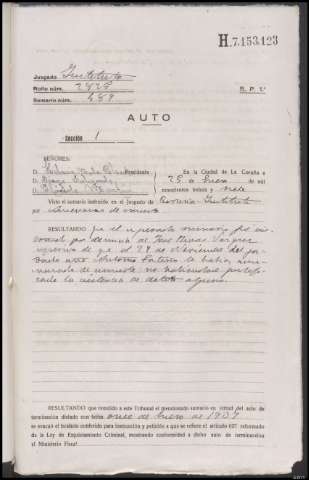 H.7.153.123
Juzgado Instituto
Rollo núm. 2825
Sumario núm. 459
R. P. 1.ª
AUTO
Sección 1
SEÑORES:
Presidente
D.
D.
En la Ciudad de La Coruña a
25 de Enero de mil
novecientos treinta y siete
Visto el sumario instruido en el Juzgado de Coruña Instituto
por amenazas de muerte
RESULTANDO que el expresado sumario fué in-
coado por denuncia de José Rivas Vazquez
de que el 24 de Noviembre del pa-
sado año Antonio le había ame-
nazado de muerte no habiendose justifi-
cado la existencia de delito alguno.
RESULTANDO que remitido a este Tribunal el mencionado sumario en virtud del auto de
terminación dictado con fecha once de Enero de 1937
se evacuó el traslado conferido para instrucción y petición a que se refiere el artículo 627 reformado
de la Ley de Enjuiciamiento Criminal, mostrando conformidad a dicho auto de terminación
el Ministerio Fiscal